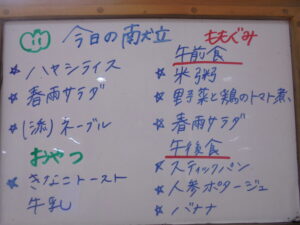 今日の献立
★ ハヤシライス
★ 春雨サラダ
★ (派)ネーブル
おやつ
★ きなこトースト
牛乳
ももぐみ
午前食
★ 米粥
★ 野菜と鶏のトマト煮
★ 春雨サラダ
午後食
★ スティックパン
★ 人参ポタージュ
★ バナナ